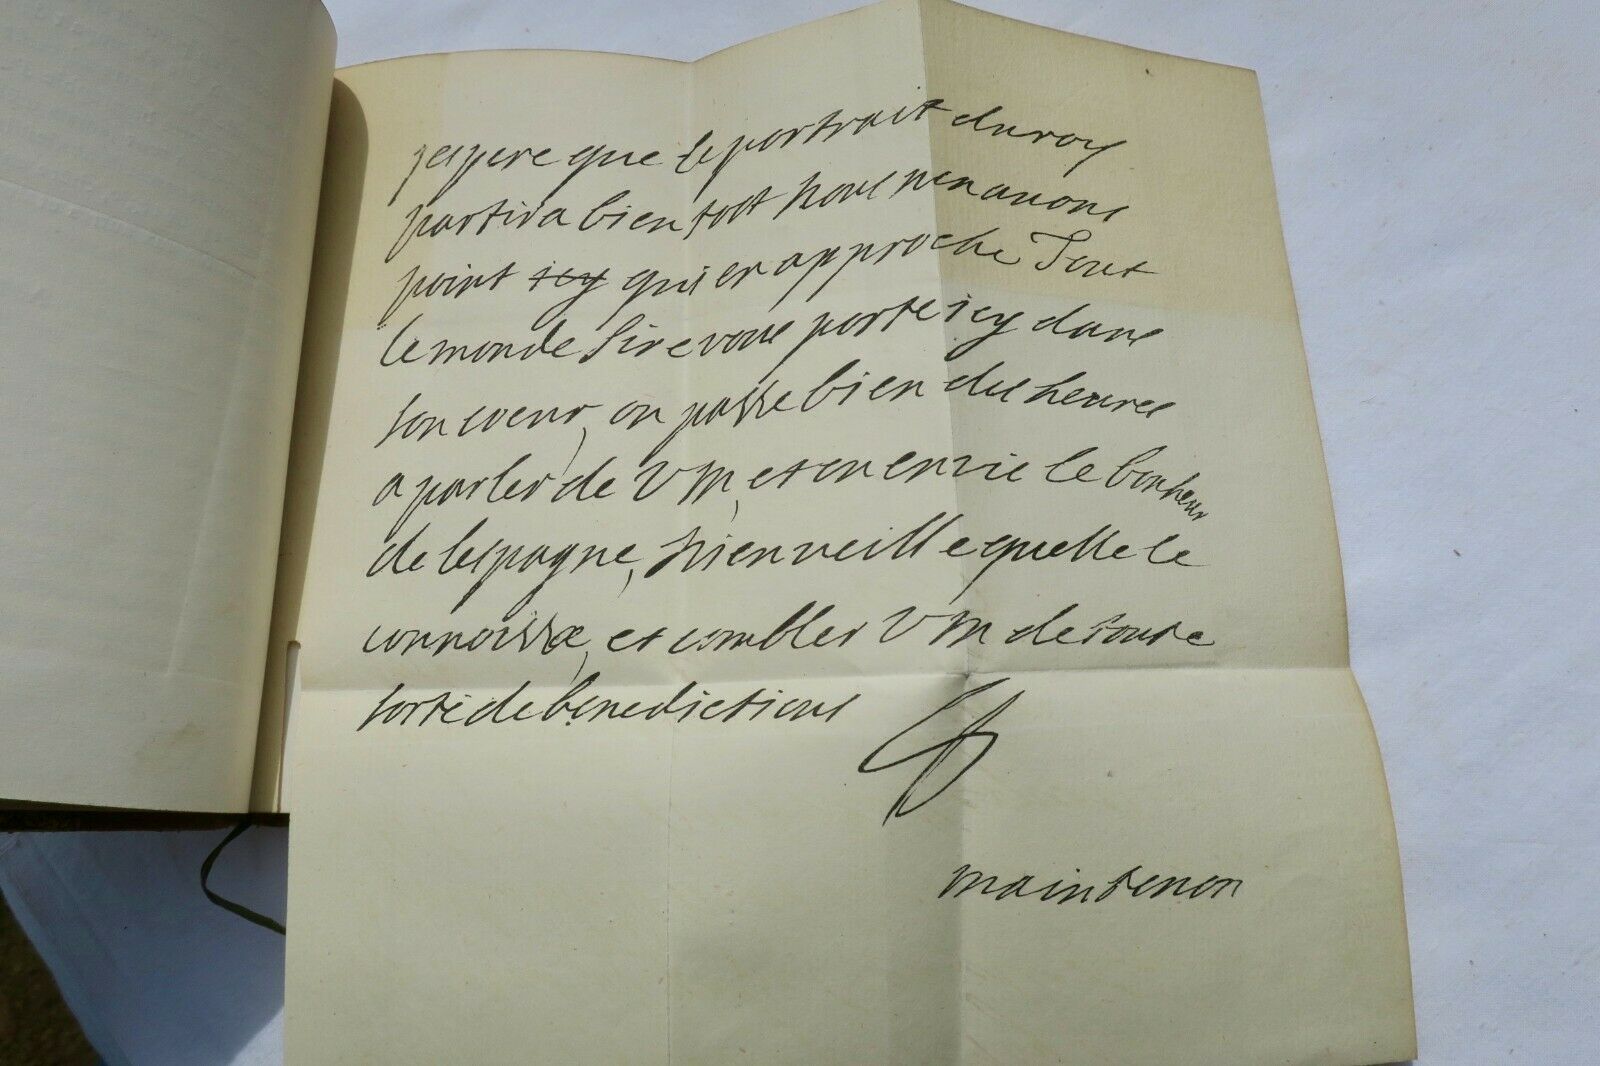 jespere que le portrait du roy
partira bientost nous nen avons
point icy qui en approche Tout
le monde Sire vous porte icy dans
son coeur, on passe bien des heures
a parler de V M, et on envie le bonheur
de lespagne, dieu veille quelle le
connoisse, et combler V M de toute
sorte de benedictions
maintenon